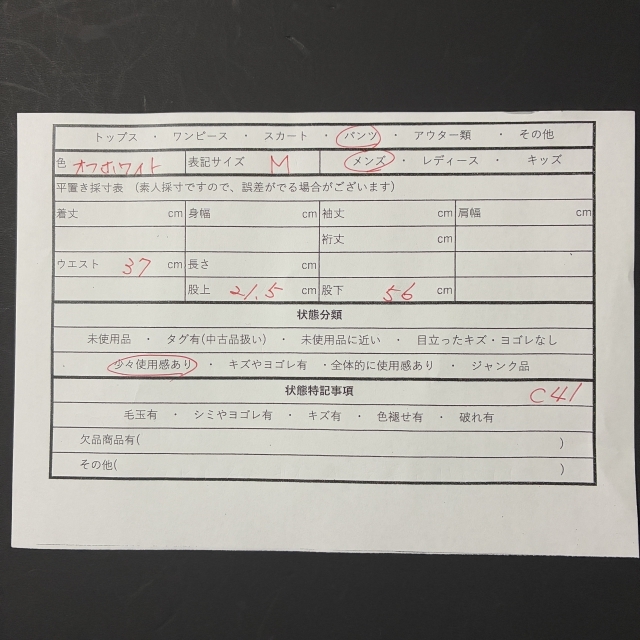 トップス ・ ワンピース ・ スカート ・ パンツ ・ アウター類 ・ その他
色 オフホワイト 表記サイズ M メンズ ・ レディース ・ キッズ
平置き採寸表 （素人採寸ですので、誤差がでる場合がございます）
着丈 cm 身幅 cm 袖丈 cm 肩幅 cm
裄丈 cm
ウエスト 37 cm 長さ cm
股上 21.5 cm 股下 56 cm
状態分類
未使用品 ・ タグ有(中古品扱い) ・ 未使用品に近い ・ 目立ったキズ・ヨゴレなし
少々使用感あり ・ キズやヨゴレ有 ・全体的に使用感あり ・ ジャンク品
状態特記事項 C41
毛玉有 ・ シミやヨゴレ有 ・ キズ有 ・ 色褪せ有 ・ 破れ有
欠品商品有( )
その他( )